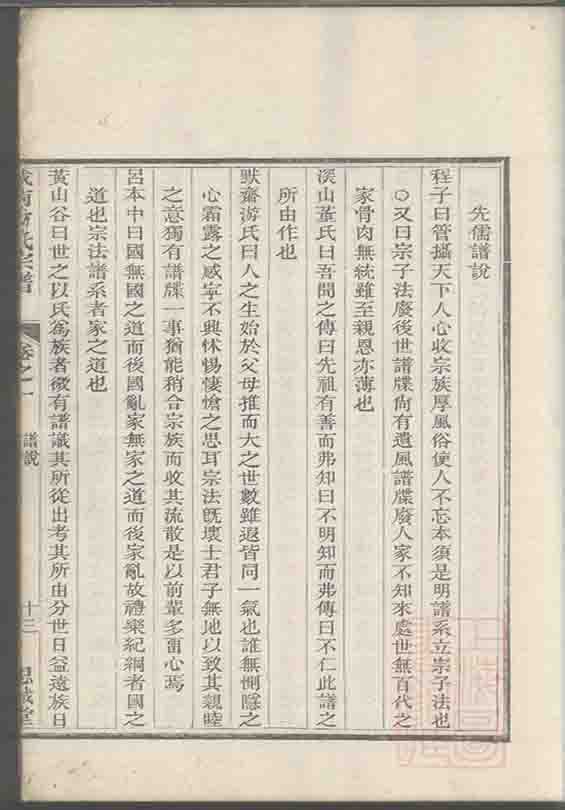 先儒譜說
程子曰管攝天下人心收宗族厚風俗使人不忘本須是明譜系立宗子法也
○又曰宗子法廢後世譜牒尙有遺風譜牒廢人家不知來處世無百代之
家骨肉無統雖至親恩亦薄也
溪山葉氏曰吾聞之傳曰先祖有善而弗知曰不明知而弗傳曰不仁此譜之
所由作也
默齋游氏曰人之生始於父母推而大之世數雖遐皆同一氣也誰無惻隱之
心霜露之感寧不興怵惕悽愴之思耳宗法旣壞士君子無地以致其親睦
之意獨有譜牒一事猶能稍合宗族而收其流散是以前輩多畱心焉
呂本中曰國無國之道而後國亂家無家之道而後家亂故禮樂紀綱者國之
道也宗法譜系者家之道也
黃山谷曰世之以氏爲族者微有譜識其所從出考其所由分世日益遠族日
氏宗譜
卷之一
譜說
十三
思誠堂